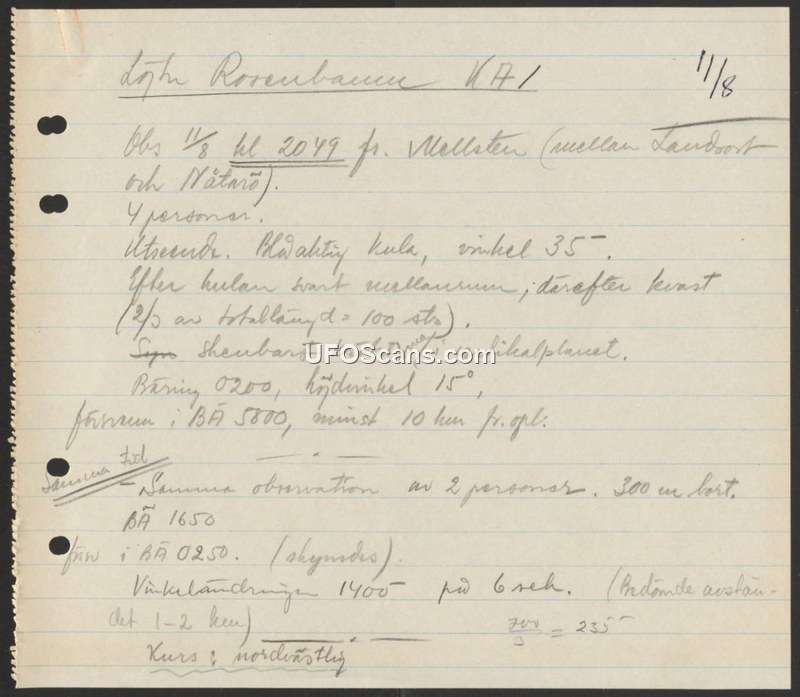 Löjtn Rosenbaum KA1
11/8
Obs 11/8 kl 2049 fr. Mellsten (mellan Landsort
och Nåtarö).
4 personer.
Utseende. Blåaktig kula, vinkel 35-.
Efter kulan svart mellanrum, därefter kvast
(2/3 av totallängd = 100 str).
Syn skenbart vertikalplanet.
UFOScans.com
Bäring 0200, höjdvinkel 15°,
försvann i BÄ 5800, minst 10 km fr. opl.
Samma tid
- Samma observation av 2 personer. 300 m bort.
BÄ 1650
förv i BÄ 0250. (skymdes).
Vinkeländringen 1400 på 6 sek. (Bedömde avstån-
det 1-2 km)
700/3 = 235
Kurs: nordvästlig